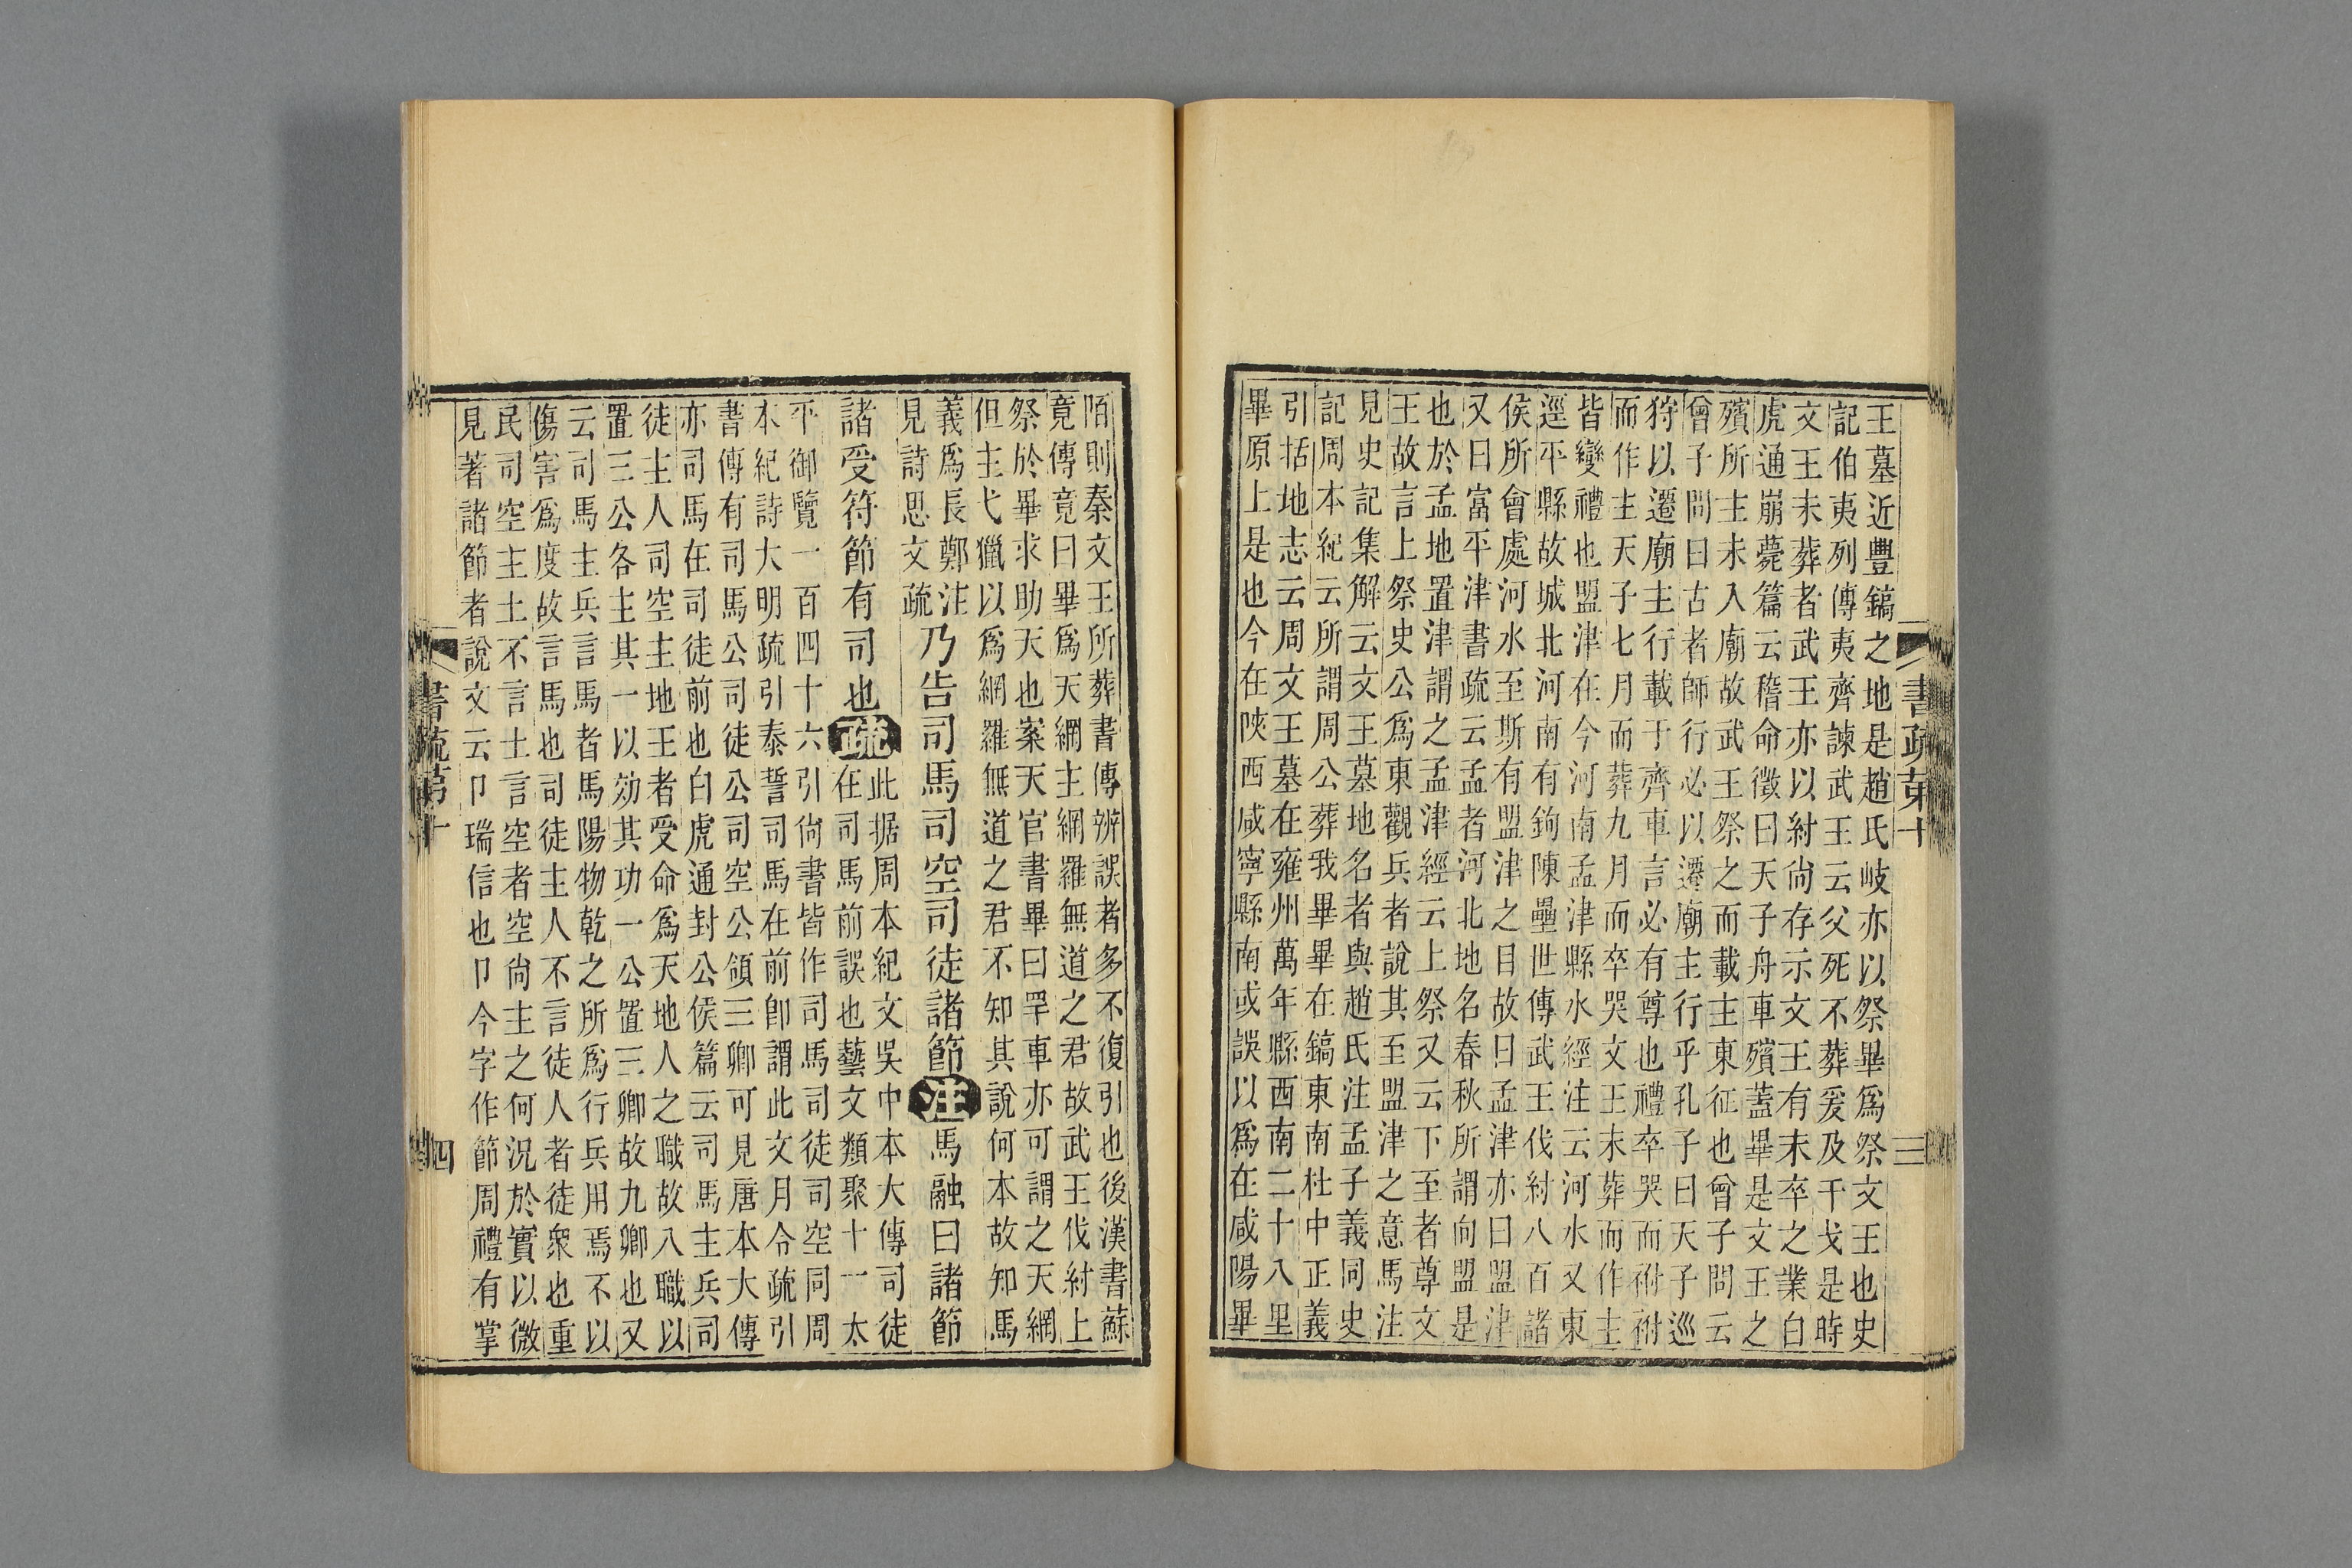 書疏第十 三
王墓近豐鎬之地是趙氏岐亦以祭畢爲祭文王也史
記伯夷列傳夷齊諫武王云父死不葬爰及干戈是時
文王未葬者武王亦以紂尙存示文王有未卒之業白
虎通崩薨篇云稽命徵曰天子舟車殯蓋畢是文王之
殯所主未入廟故武王祭之而載主東征也曾子問云
曾子問曰古者師行必以遷廟主行乎孔子曰天子巡
狩以遷廟主行載于齊車言必有尊也禮卒哭而祔祔
而作主天子七月而葬九月而卒哭文王未葬而作主
皆變禮也盟津在今河南孟津縣水經注云河水又東
逕平縣故城北河南有鉤陳壘世傳武王伐紂八百諸
侯所會處河水至斯有盟津之目故曰孟津亦曰盟津
又曰富平津書疏云孟者河北地名春秋所謂向盟是
也於孟地置津謂之孟津經云上祭又云下至者尊文
王故言上祭史公爲東觀兵者說其至盟津之意馬注
見史記集解云文王墓地名者與趙氏注孟子義同史
記周本紀云所謂周公葬我畢畢在鎬東南杜中正義
引括地志云周文王墓在雍州萬年縣西南二十八里
畢原上是也今在陝西咸寧縣南或誤以爲在咸陽畢
陌則秦文王所葬書傳辨誤者多不復引也後漢書蘇
竟傳竟曰畢爲天網主網羅無道之君故武王伐紂上
祭於畢求助天也案天官書畢曰罕車亦可謂之天網
但主弋獵以爲網羅無道之君不知其說何本故知馬
義爲長鄭注
見詩思文疏
乃告司馬司空司徒諸節注馬融曰諸節
諸受符節有司也疏
此据周本紀文吳中本大傳司徒
在司馬前誤也藝文類聚十一太
平御覽一百四十六引尙書皆作司馬司徒司空同周
本紀詩大明疏引泰誓司馬在前卽謂此文月令疏引
書傳有司馬公司徒公司空公領三卿可見唐本大傳
亦司馬在司徒前也白虎通封公侯篇云司馬主兵司
徒主人司空主地王者受命爲天地人之職故八職以
置三公各主其一以効其功一公置三卿故九卿也又
云司馬主兵言馬者馬陽物乾之所爲行兵用焉不以
傷害爲度故言馬也司徒主人不言徒人者徒衆也重
民司空主土不言土言空者空尙主之何況於實以微
見著諸節者說文云卪瑞信也卪今字作節周禮有掌
書疏第十 四